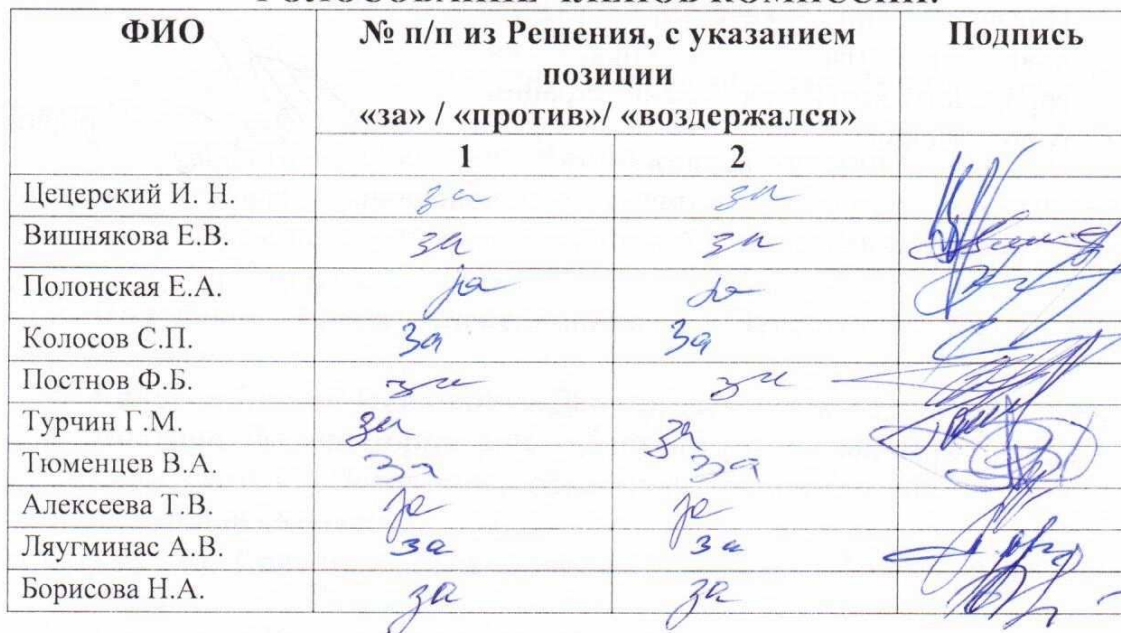 ГОЛОСОВАНИЕ ЧЛЕНОВ КОМИССИИ:
ФИО № п/п из Решения, с указанием Подпись
позиции
«за» / «против»/ «воздержался»
1 2
Цецерский И. Н. за за
Вишнякова Е.В. за за
Полонская Е.А. за за
Колосов С.П. За За
Постнов Ф.Б. за за
Турчин Г.М. за за
Тюменцев В.А. За За
Алексеева Т.В. за за
Ляугминас А.В. за за
Борисова Н.А. за за